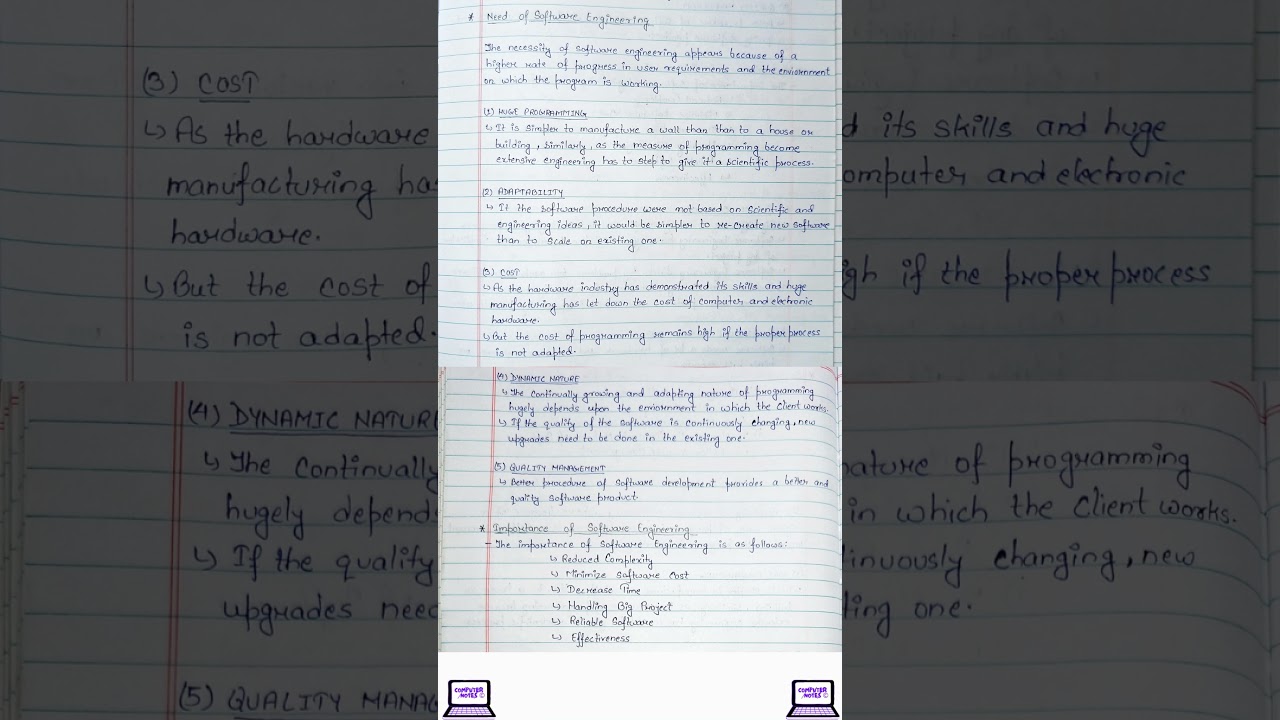 * Need of Software Engineering
The necessity of software engineering appears because of a
higher rate of progress in user requirements and the enviornment
on which the program is working.
(1) HUGE PROGRAMMING
↳ It is simpler to manufacture a wall than than to a house or
building, similarly, as the measure of programming become
extensive engineering has to step to give it a scientific process.
(2) ADAPTABILITY
↳ If the software procedure were not based on scientific and
engineering ideas, it would be simpler to re-create new software
than to scale an existing one.
(3) COST
↳ As the hardware industry has demonstrated its skills and huge
manufacturing has let down the cost of computer and electronic
hardware.
↳ But the cost of programming remains high if the proper process
is not adapted.
(4) DYNAMIC NATURE
↳ The continually growing and adapting nature of programming
hugely depends upon the enviornment in which the client works.
↳ If the quality of the software is continuously changing, new
upgrades need to be done in the existing one.
(5) QUALITY MANAGEMENT
↳ Better procedure of software development provides a better and
quality software product.
* Importance of Software Engineering
- The importance of Software Engineering is as follows:
↳ Reduced Complexity
↳ Minimize Software Cost
↳ Decrease Time
↳ Handling Big Project
↳ Reliable Software
↳ Effectiveness
COMPUTER
NOTES ©
COMPUTER
NOTES ©
(3) COST
↳ As the hardware
manufacturing ha
hardware.
↳ But the cost of
is not adapted.
(4) DYNAMIC NATUR
↳ The continually
hugely depend
↳ If the quality
upgrades need
(5) QUALITY MANAG
d its skills and huge
omputer and electronic
igh if the proper process
nature of programming
in which the client works.
tinuously changing, new
ting one.